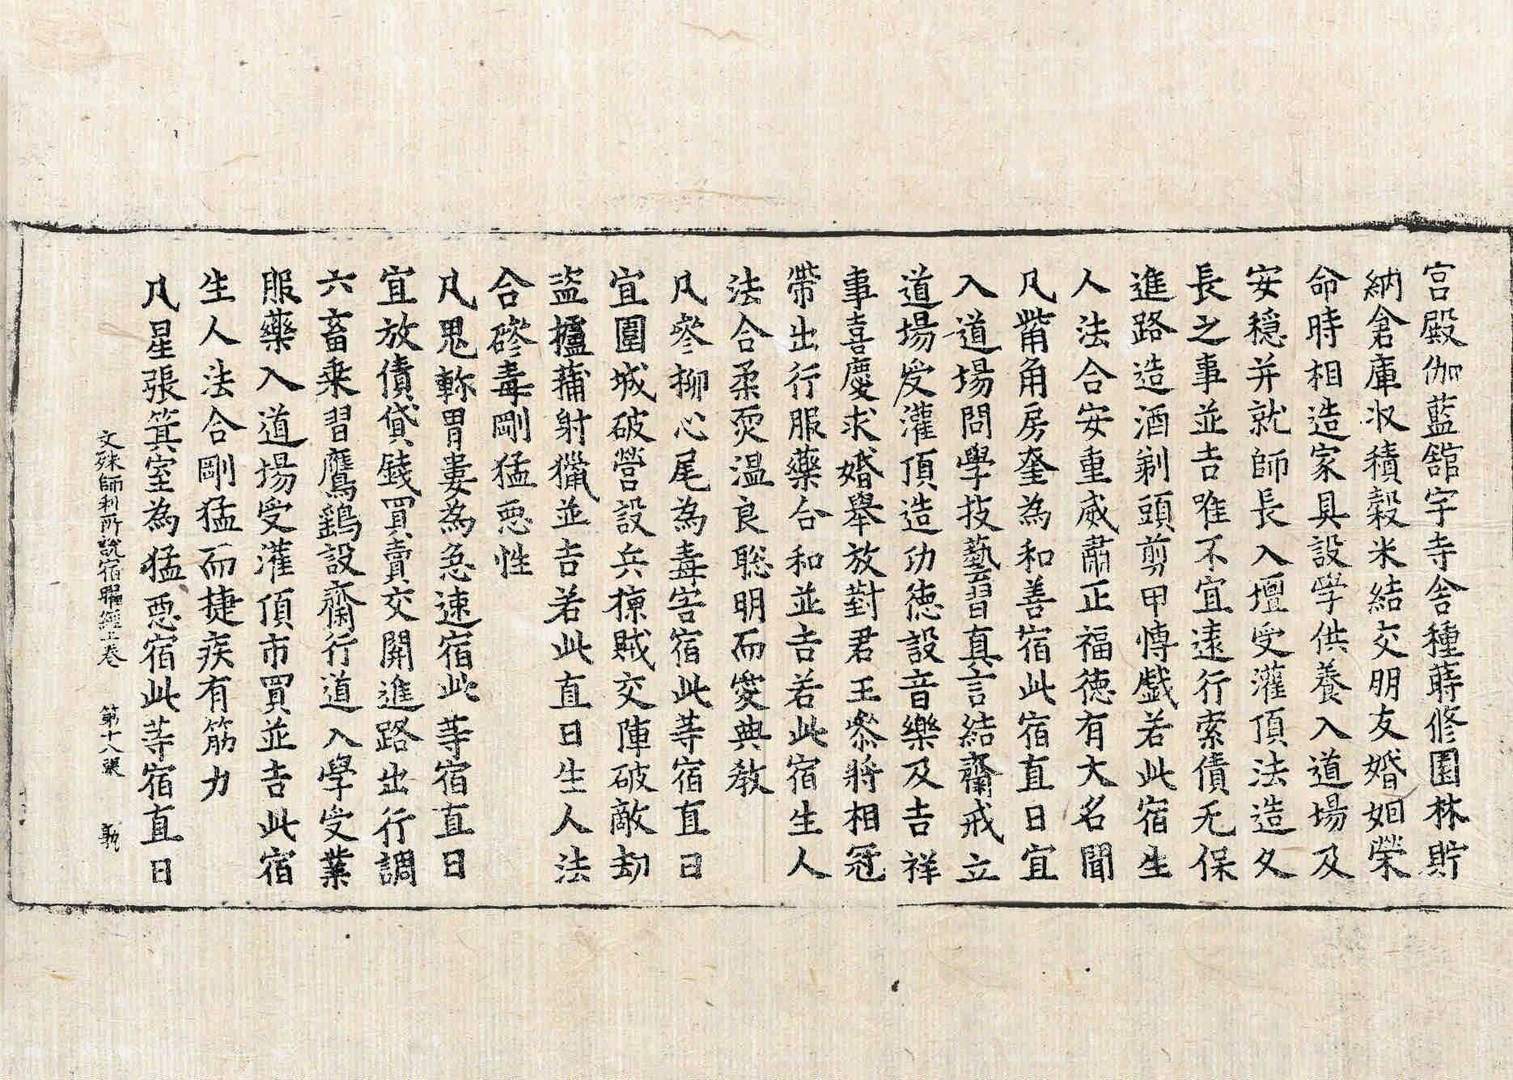 宮殿伽藍舘宇寺舍種蒔修園林貯
納倉庫收積穀米結交朋友婚姻榮
命時相造家具設學供養入道場及
安穏并就師長入壇受灌頂法造久
長之事並吉唯不宜遠行索債无保
進路造酒剃頭剪甲愽戲若此宿生
人法合安重威肅正福徳有大名聞
凡觜角房奎為和善宿此宿直日宜
入道場問學技藝習真言結齋戒立
道場受灌頂造功徳設音樂及吉祥
事喜慶求婚舉放對君王叅將相冠
帶出行服藥合和並吉若此宿生人
法合柔耎温良聡明而愛典教
凡參柳心尾為毒害宿此等宿直日
宜圍城破營設兵掠賊交陣破敵刧
盗摴蒱射獵並吉若此直日生人法
合磣毒剛猛悪性
凡鬼軫胃婁為急速宿此等宿直日
宜放債貸錢買賣交開進路出行調
六畜乗習鷹鷂設齋行道入學受業
服藥入道場受灌頂市買並吉此宿
生人法合剛猛而捷疾有筋力
凡星張箕室為猛悪宿此等宿直日
文殊師利所說宿曜經上卷 第十八張